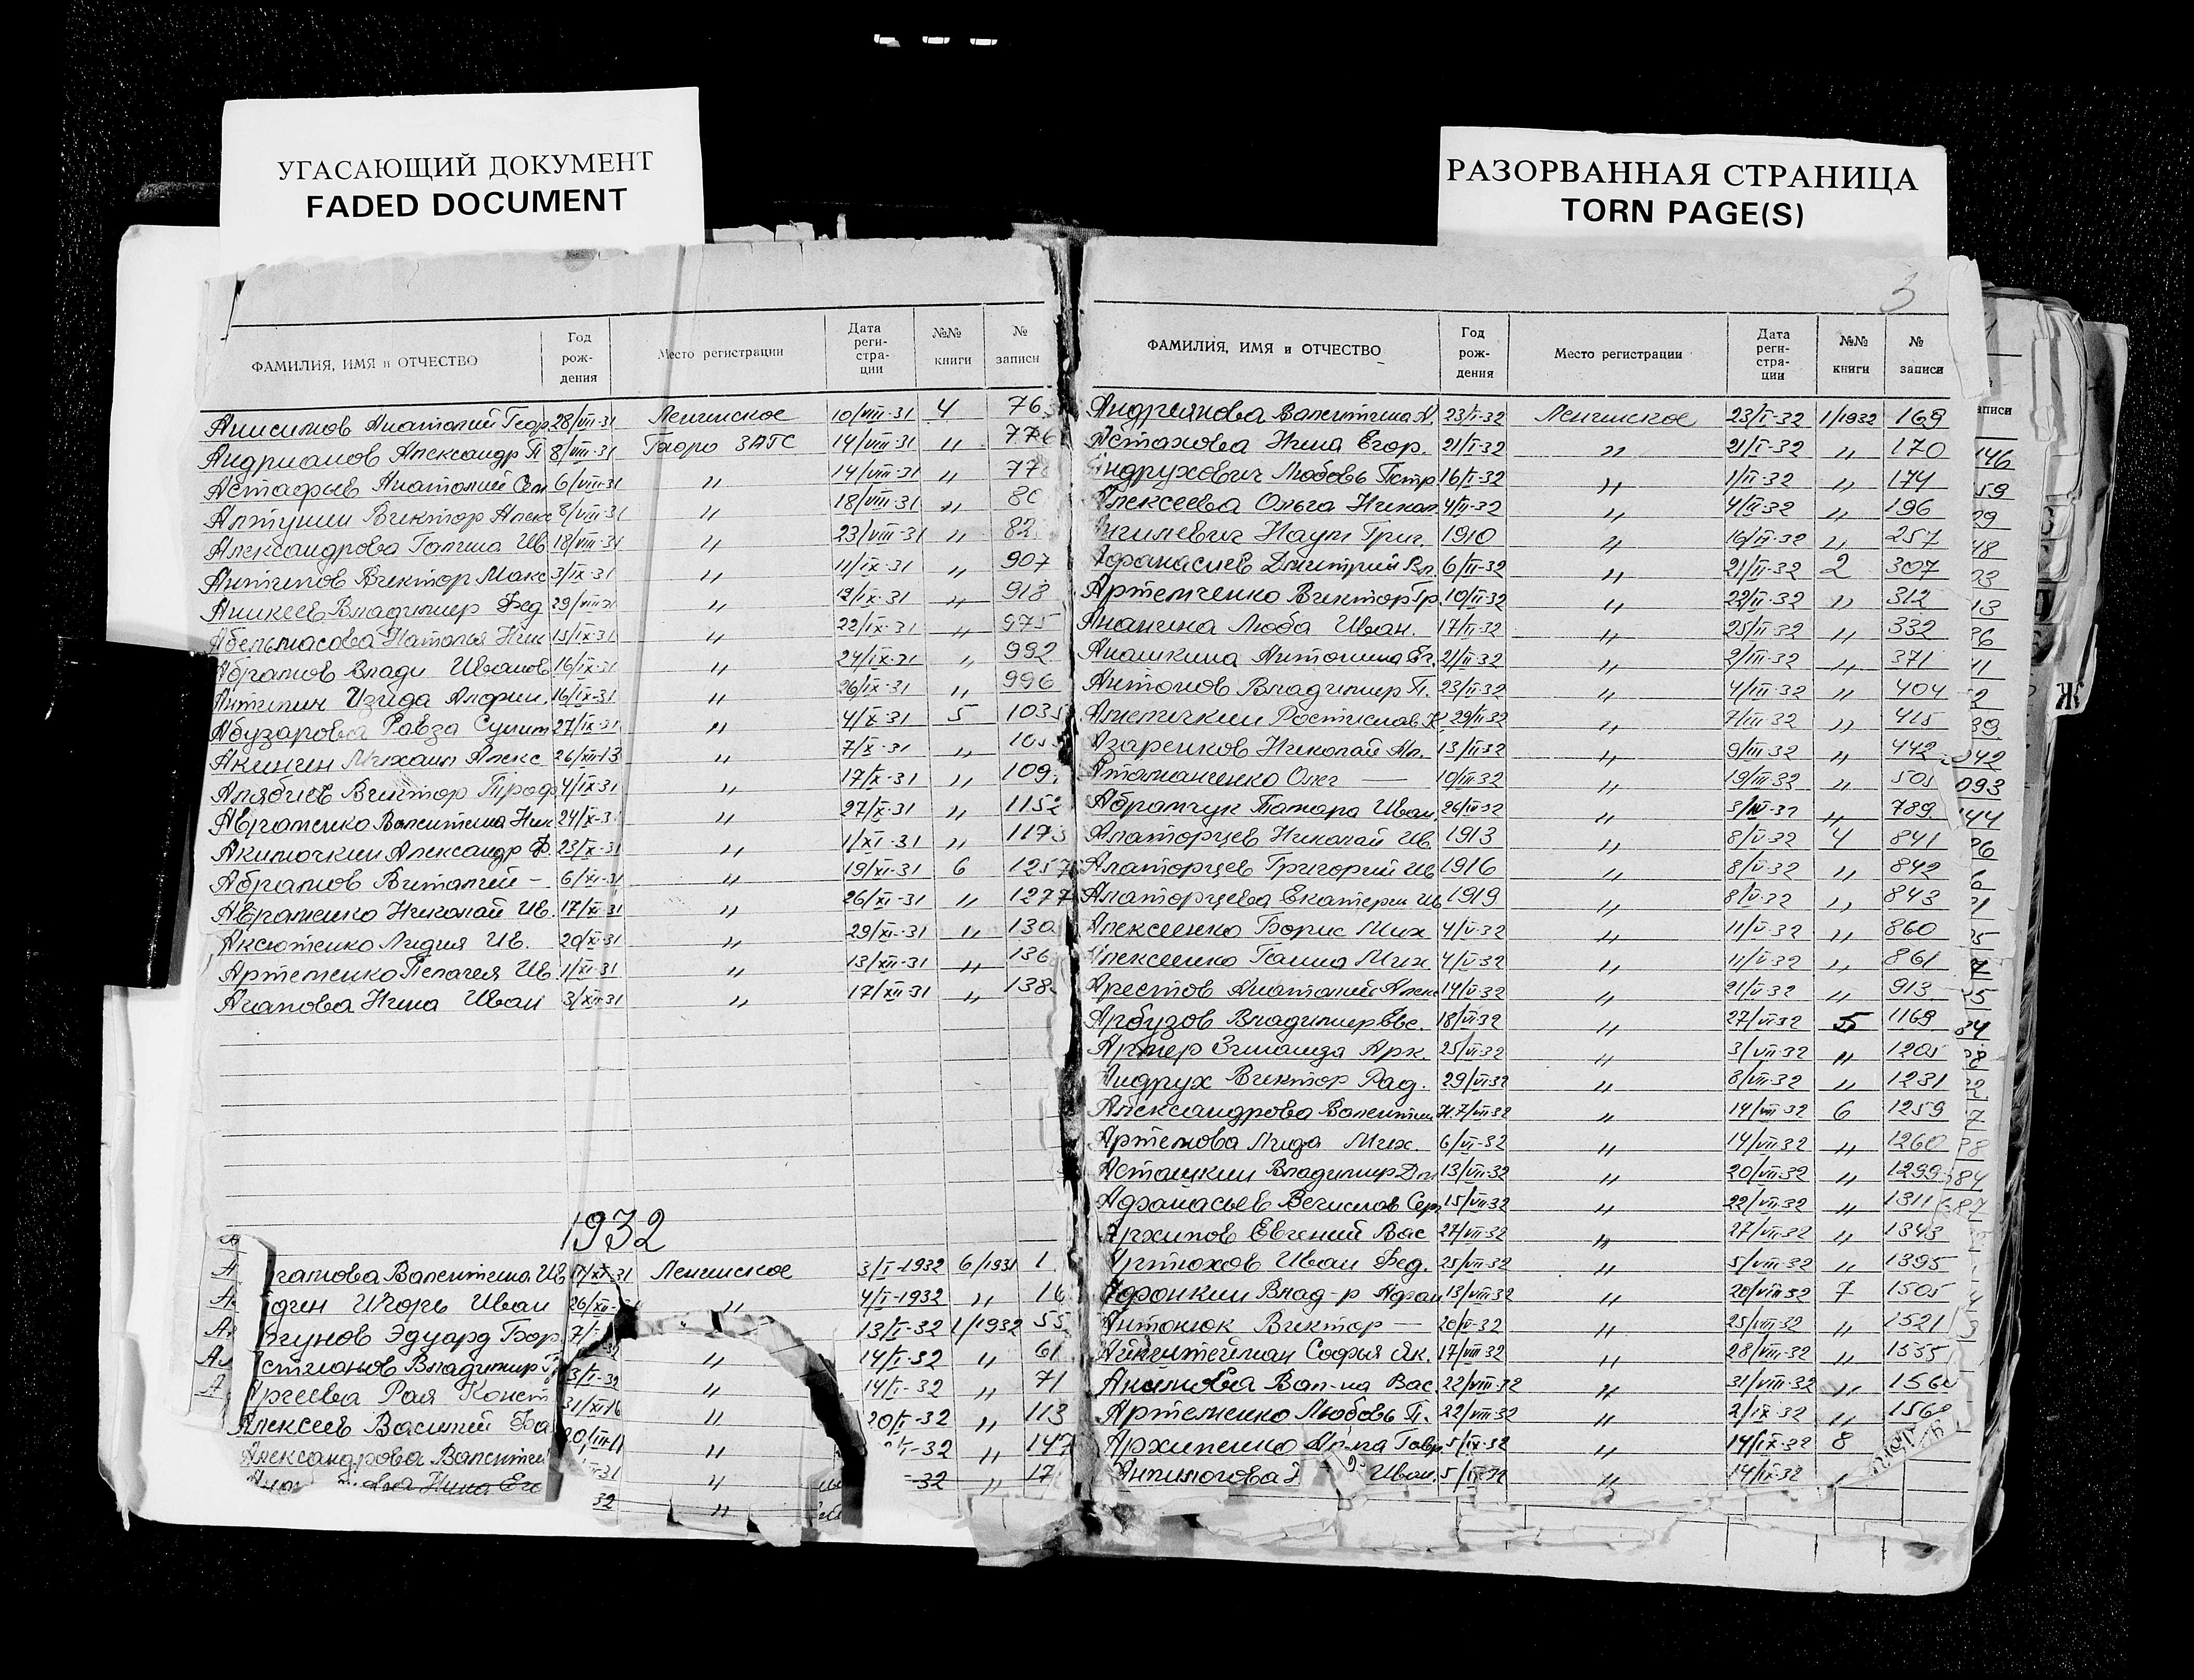 УГАСАЮЩИЙ ДОКУМЕНТ
FADED DOCUMENT
РАЗОРВАННАЯ СТРАНИЦА
TORN PAGE(S)
ФАМИЛИЯ, ИМЯ и ОТЧЕСТВО Год рождения Место регистрации Дата регистрации №№ книги № записи
Анисимов Анатолий Геор 28/VII-31 Ленинское 10/VIII-31 4 76
Андрианов Александр П 8/VIII-31 Бюро ЗАГС 14/VIII-31 " 776
Астафьев Анатолий Сем 6/VIII-31 " 14/VIII-31 " 77
Алтунин Виктор Алекс 8/VIII-31 " 18/VIII-31 " 80
Александрова Галина Ив 18/VIII-31 " 23/VIII-31 " 82
Антипов Виктор Макс 3/IX-31 " 11/IX-31 " 907
Аникеев Владимир Фед 29/VIII-31 " 12/IX-31 " 918
Абельмасова Наталья Ник 15/IX-31 " 22/IX-31 " 975
Абрамов Влади Иванов 16/IX-31 " 24/IX-31 " 992
Антипин Изида 16/IX-31 " 26/IX-31 " 996
Абузарова Равза 27/IX-31 " 4/X-31 5 1035
Акинчин Михаил Алекс 26/XII-13 " 7/X-31 "
Алябиев Виктор Троф 4/IX-31 " 17/X-31 " 109
Авраменко Валентина Ник 24/X-3 " 27/X-31 " 1152
Акимочкин Александр Ф. 23/X-31 " 1/XI-31 " 1173
Абрамов Виталий - 6/XI-31 " 19/XI-31 6 1257
Авраменко Николай Ив. 17/XI-31 " 26/XI-31 " 1277
Аксютенко Лидия Ив. 20/XI-31 " 29/XI-31 " 130
Артеменко Пелагея Ив. 1/XI-31 " 13/XII-31 " 136
Агапова Нина Иван 3/XII-31 " 17/XII-31 " 138
1932
гамова Валентина Ив 17/XII-31 Ленинское 3/I-1932 6/1931 1
дин Игорь Иван 26/XII- " 4/I-1932 " 16
гунов Эдуард Бор. 7/ " 13/I-32 1/1932 55
Владимир " 14/I-32 " 61
ргеева Рая Конст 3/I-32 " 14/I-32 " 71
Алексеев Василий 31/XI16 " 20/I-32 " 113
Александрова Валентин " I-32 " 147
Нина Его -31 " -32 " 17
32 "
3
ФАМИЛИЯ, ИМЯ и ОТЧЕСТВО Год рождения Место регистрации Дата регистрации №№ книги № записи
Андриянова Валентина А. 23/I-32 Ленинское 23/I-32 1/1932 169
Астахова Нина Егор. 21/I-32 " 21/I-32 " 170
Андрухович Любовь Петр 16/I-32 " 1/II-32 " 174
Алексеева Ольга Никол. 4/II-32 " 4/II-32 " 196
Ангилевич Наум Григ. 1910 " 16/II-32 " 257
Афанасиев Дмитрий Вл. 6/II-32 " 21/II-32 2 307
Артемченко Виктор Гр. 10/II-32 " 22/II-32 " 312
Ананина Люба Иван. 17/II-32 " 25/II-32 " 332
Анашкина Антонина Ег. 21/II-32 " 2/III-32 " 371
Антонов Владимир П. 23/II-32 " 4/III-32 " 404
Ростислав 29/II-32 " 7/III-32 " 415
Азаренков Николай Ал. 13/II-32 " 9/III-32 " 442
Атаманченко Олег — 10/III-32 " 19/III-32 " 501
Абрамчук Тамара Иван. 26/IV-32 " 3/IV-32 " 789
Алаторцев Николай Ив 1913 " 8/V-32 4 841
Алаторцев Григорий Ив 1916 " 8/V-32 " 842
Алаторцева Екатерин Ив 1919 " 8/V-32 " 843
Алексеенко Борис Мих 4/V-32 " 11/V-32 " 860
Алексеенко Галина Мих 4/V-32 " 11/V-32 " 861
Арестов Анатолий Алекс 14/V-32 " 21/V-32 " 913
Арбузов Владимир Евс. 18/VI-32 " 27/VI-32 5 1169
Зинаида Арк. 25/VI-32 " 3/VII-32 " 1205
Андрух Виктор Рад. 29/VI-32 " 8/VII-32 " 1231
Александрова Валентин Н. 7/VII-32 " 14/VII-32 6 1259
Артемова Лида Мих. 6/VI-32 " 14/VII-32 " 1260
Асташкин Владимир Дм 13/VII-32 " 20/VII-32 " 1299
Афанасьев Вечислав Сер 15/VII-32 " 22/VII-32 " 1311
Архипов Евгений Вас 27/VII-32 " 27/VII-32 " 1343
Артюхов Иван Фед. 25/VII-32 " 5/VIII-32 " 1395
Афонкин Влад-р Афан 13/VIII-32 " 20/VIII-32 7 1505
Антонюк Виктор — 20/V-32 " 25/VIII-32 " 1521
Софья Як. 17/VIII-32 " 28/VIII-32 " 1535
Акимова Вал-на Вас. 22/VIII-32 " 31/VIII-32 " 156
Артеменко Любовь П. 22/VIII-32 " 2/IX-32 " 156
Архипенко Гавр. 5/IX-32 " 14/IX-32 8
Анпилогова Иван. 5/IX-32 " 14/IX-32
Ж